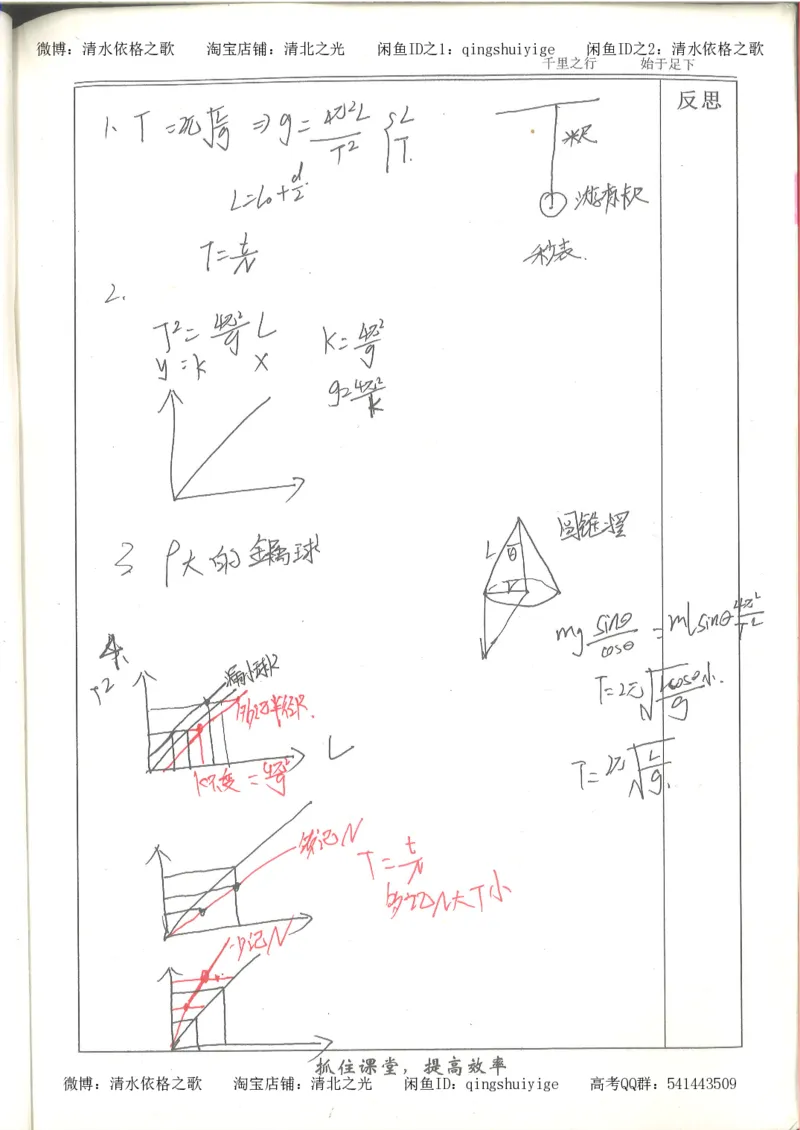 微博：清水依格之歌 淘宝店铺：清北之光 闲鱼ID之1：qingshuiyige 闲鱼ID之2：清水依格之歌
千里之行 始于足下
反思
1. T=2π√(L/g) ⇒ g=4π²L/T² { L T.
米尺
L=L₀+d/2
游标卡尺
T=t/N
秒表.
2.
T²=4π²/g L
K=4π²/g
y=k x
g=4π²/k
3 ρ大的金属球
圆锥摆
L θ
r
mg sinθ/cosθ = mLsinθ 4π²/T²
4.
T²
漏加球R
T=2π√(Lcosθ/g) 小.
L
K不变=4π²/g
T=2π√(L/g).
多记N
T=t/N
多记N大T小
少记N
抓住课堂，提高效率
微博：清水依格之歌 淘宝店铺：清北之光 闲鱼ID：qingshuiyige 高考QQ群：541443509